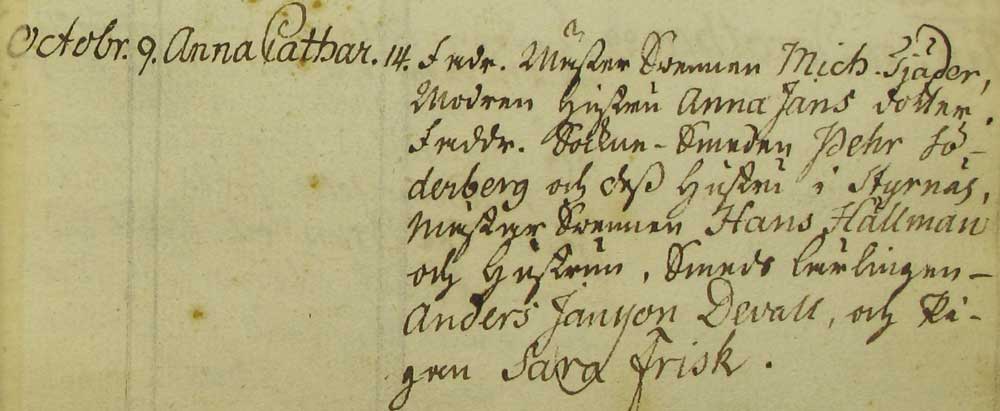 Octobr. 9. Anna Cathar. 14. Fadr. Mäster Svennen Mich. Fjäder,
Modren Hustru Anna Jans dotter.
Faddr. Sockne-Smeden Pehr Sö-
derberg och deß Hustru i Styrnäs,
Mästar Svennen Hans Hällman
och Hustrun, Smeds lärlingen
Anders Janson Devall, och Pi-
gan Sara Frisk.